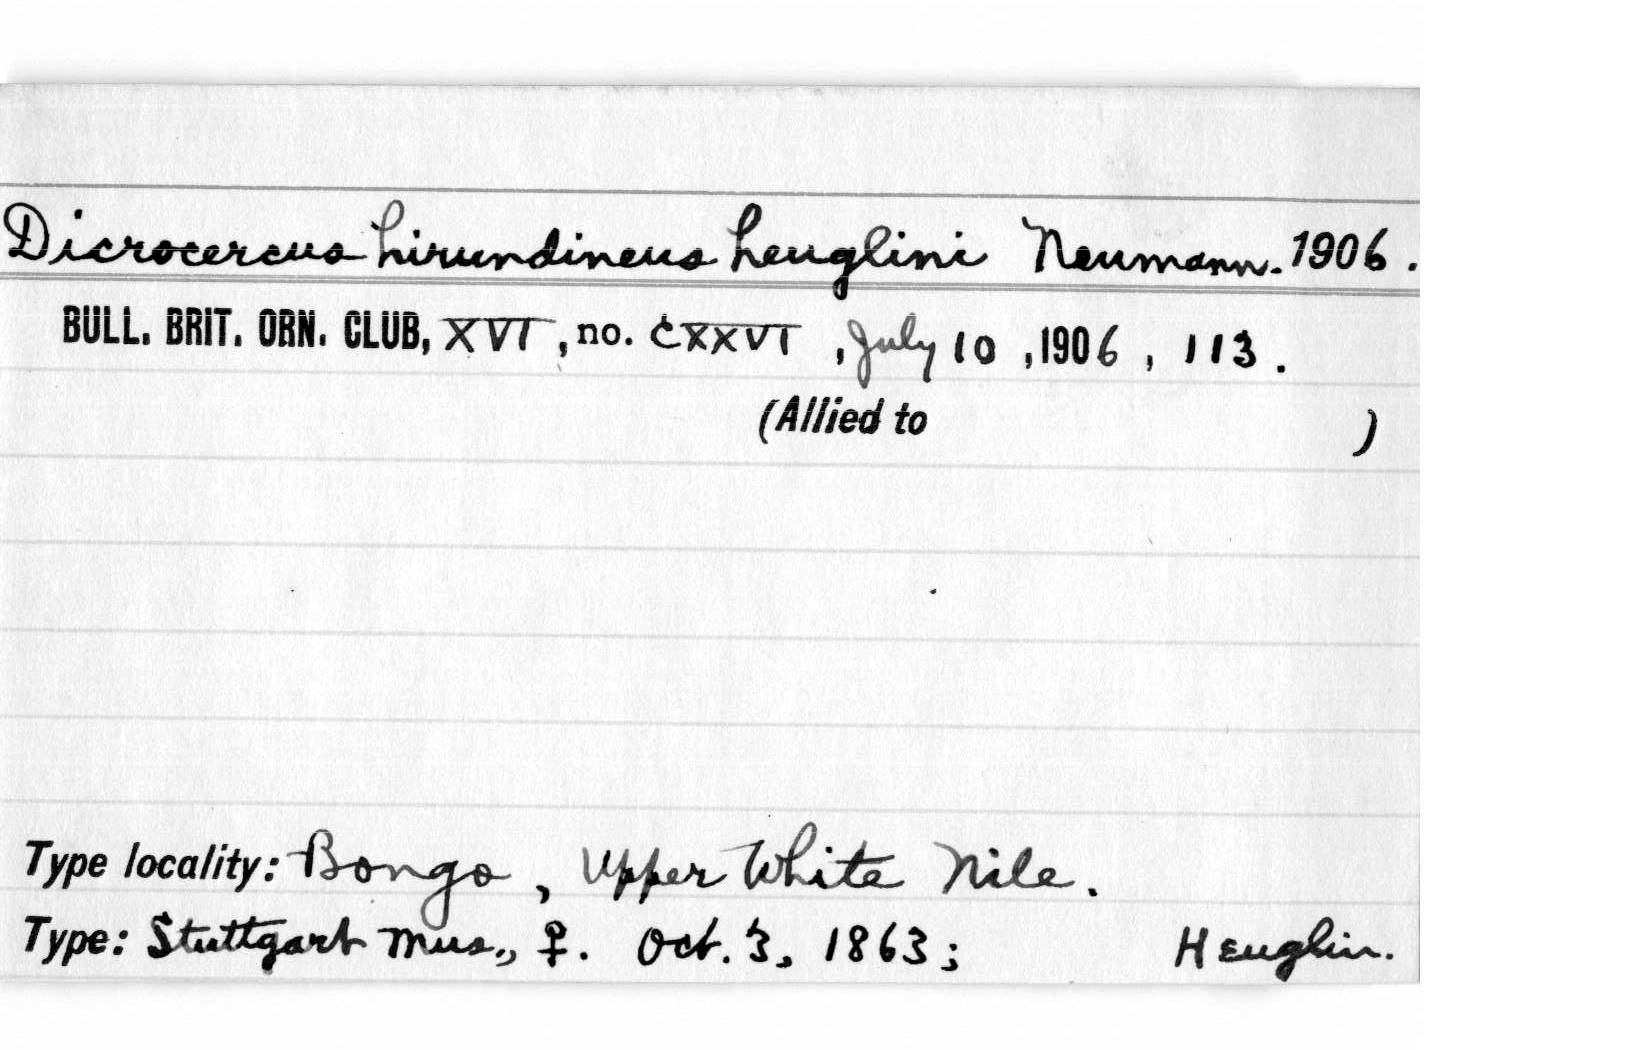 Dicrocercus hirundineus heuglini Neumann. 1906.
BULL. BRIT. ORN. CLUB, XVI, no. CXXVI, July 10, 1906, 113.
(Allied to )
Type locality: Bongo, Upper White Nile.
Type: Stuttgart Mus., ♀. Oct. 3, 1863; Heuglin.